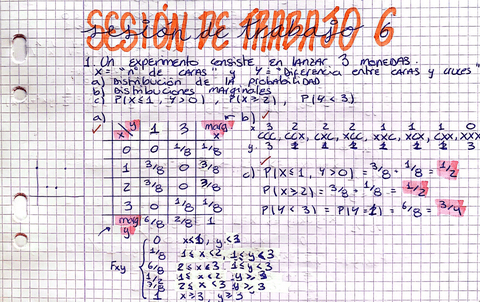 SESIÓN DE TRABAJO 6
sesión de trabajo
1. Un experimento consiste en lanzar 3 monedas.
X = "nº de caras" y Y = "Diferencia entre caras y cruces"
a) Distribución de la probabilidad
b) Distribuciones marginales
c) P(X≤1, Y>0), P(X≥2), P(Y<3)
a) b) X 3 2 2 2 1 1 1 0
X Y 1 3 marg x CCC, CCX, CXC, XCC, XXC, XCX, CXX, XXX
0 0 1/8 1/8 Y. 3 1 1 1 1 1 1 3
1 3/8 0 3/8 c) P(X≤1, Y>0) = 3/8 + 1/8 = 1/2
2 3/8 0 3/8 P(X≥2) = 3/8 + 1/8 = 1/2
3 0 1/8 1/8 P(Y<3) = P(Y=1) = 6/8 = 3/4
marg y 6/8 2/8 1
0 x<1, y<3
Fxy 3/8 1≤x<2, 1≤y<3
6/8 2≤x<3, 1≤y<3
1≤x<2, y≥3
2≤x<3, y≥3
1 x≥3, y≥3